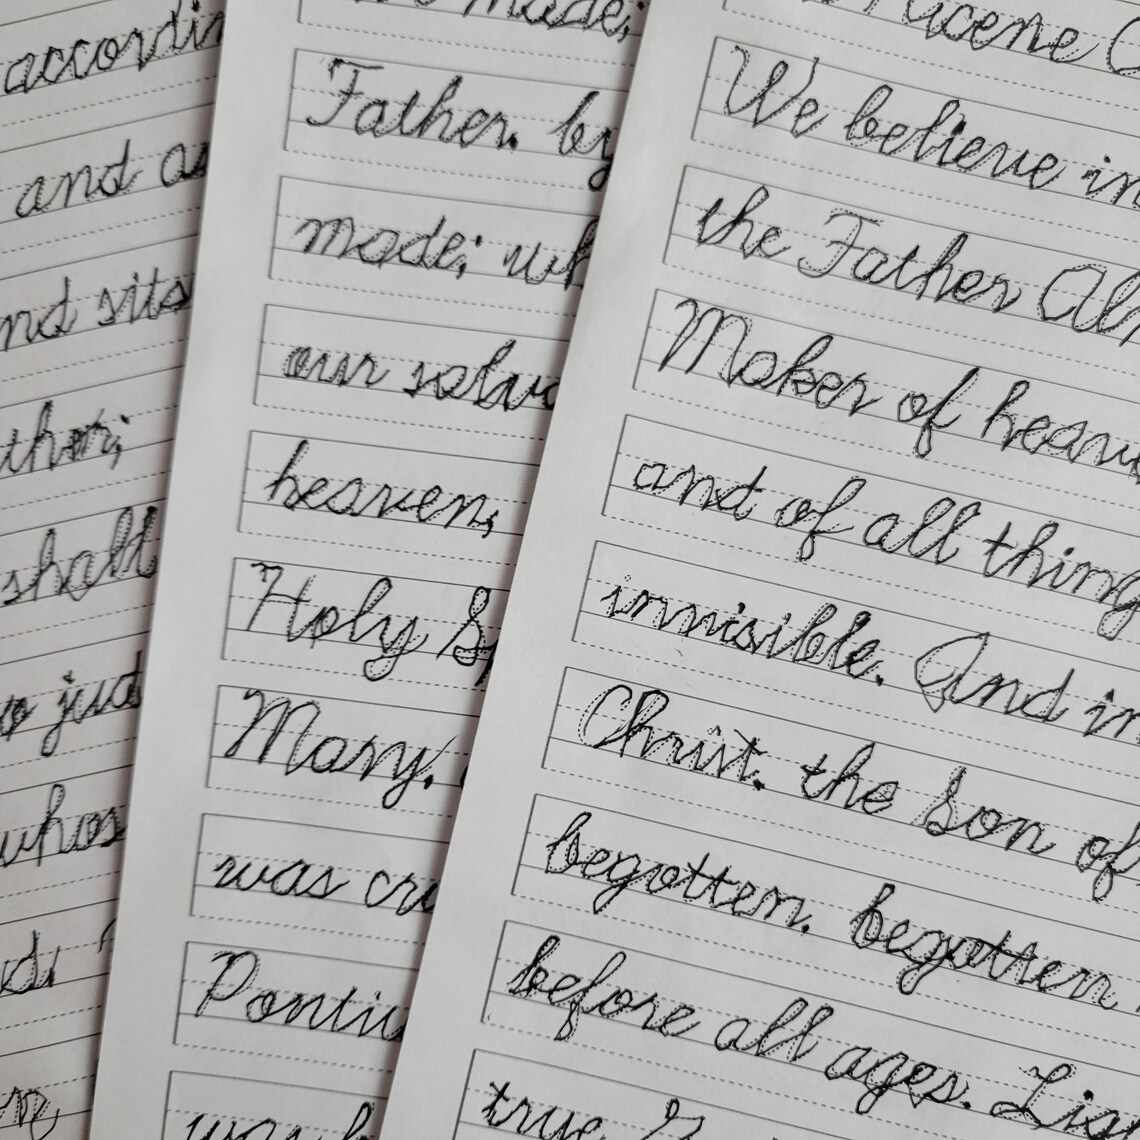 accordin
and as
nd sits
ther;
shall
o jud
whos
made;
Father, by
made; wh
our salva
heaven,
Holy Sp
Mary,
was cru
Pontiu
was b
Nicene C
We believe in
the Father Al
Maker of heave
and of all thing
invisible. And in
Christ, the Son of
begotten, begotten
before all ages. Lig
true G